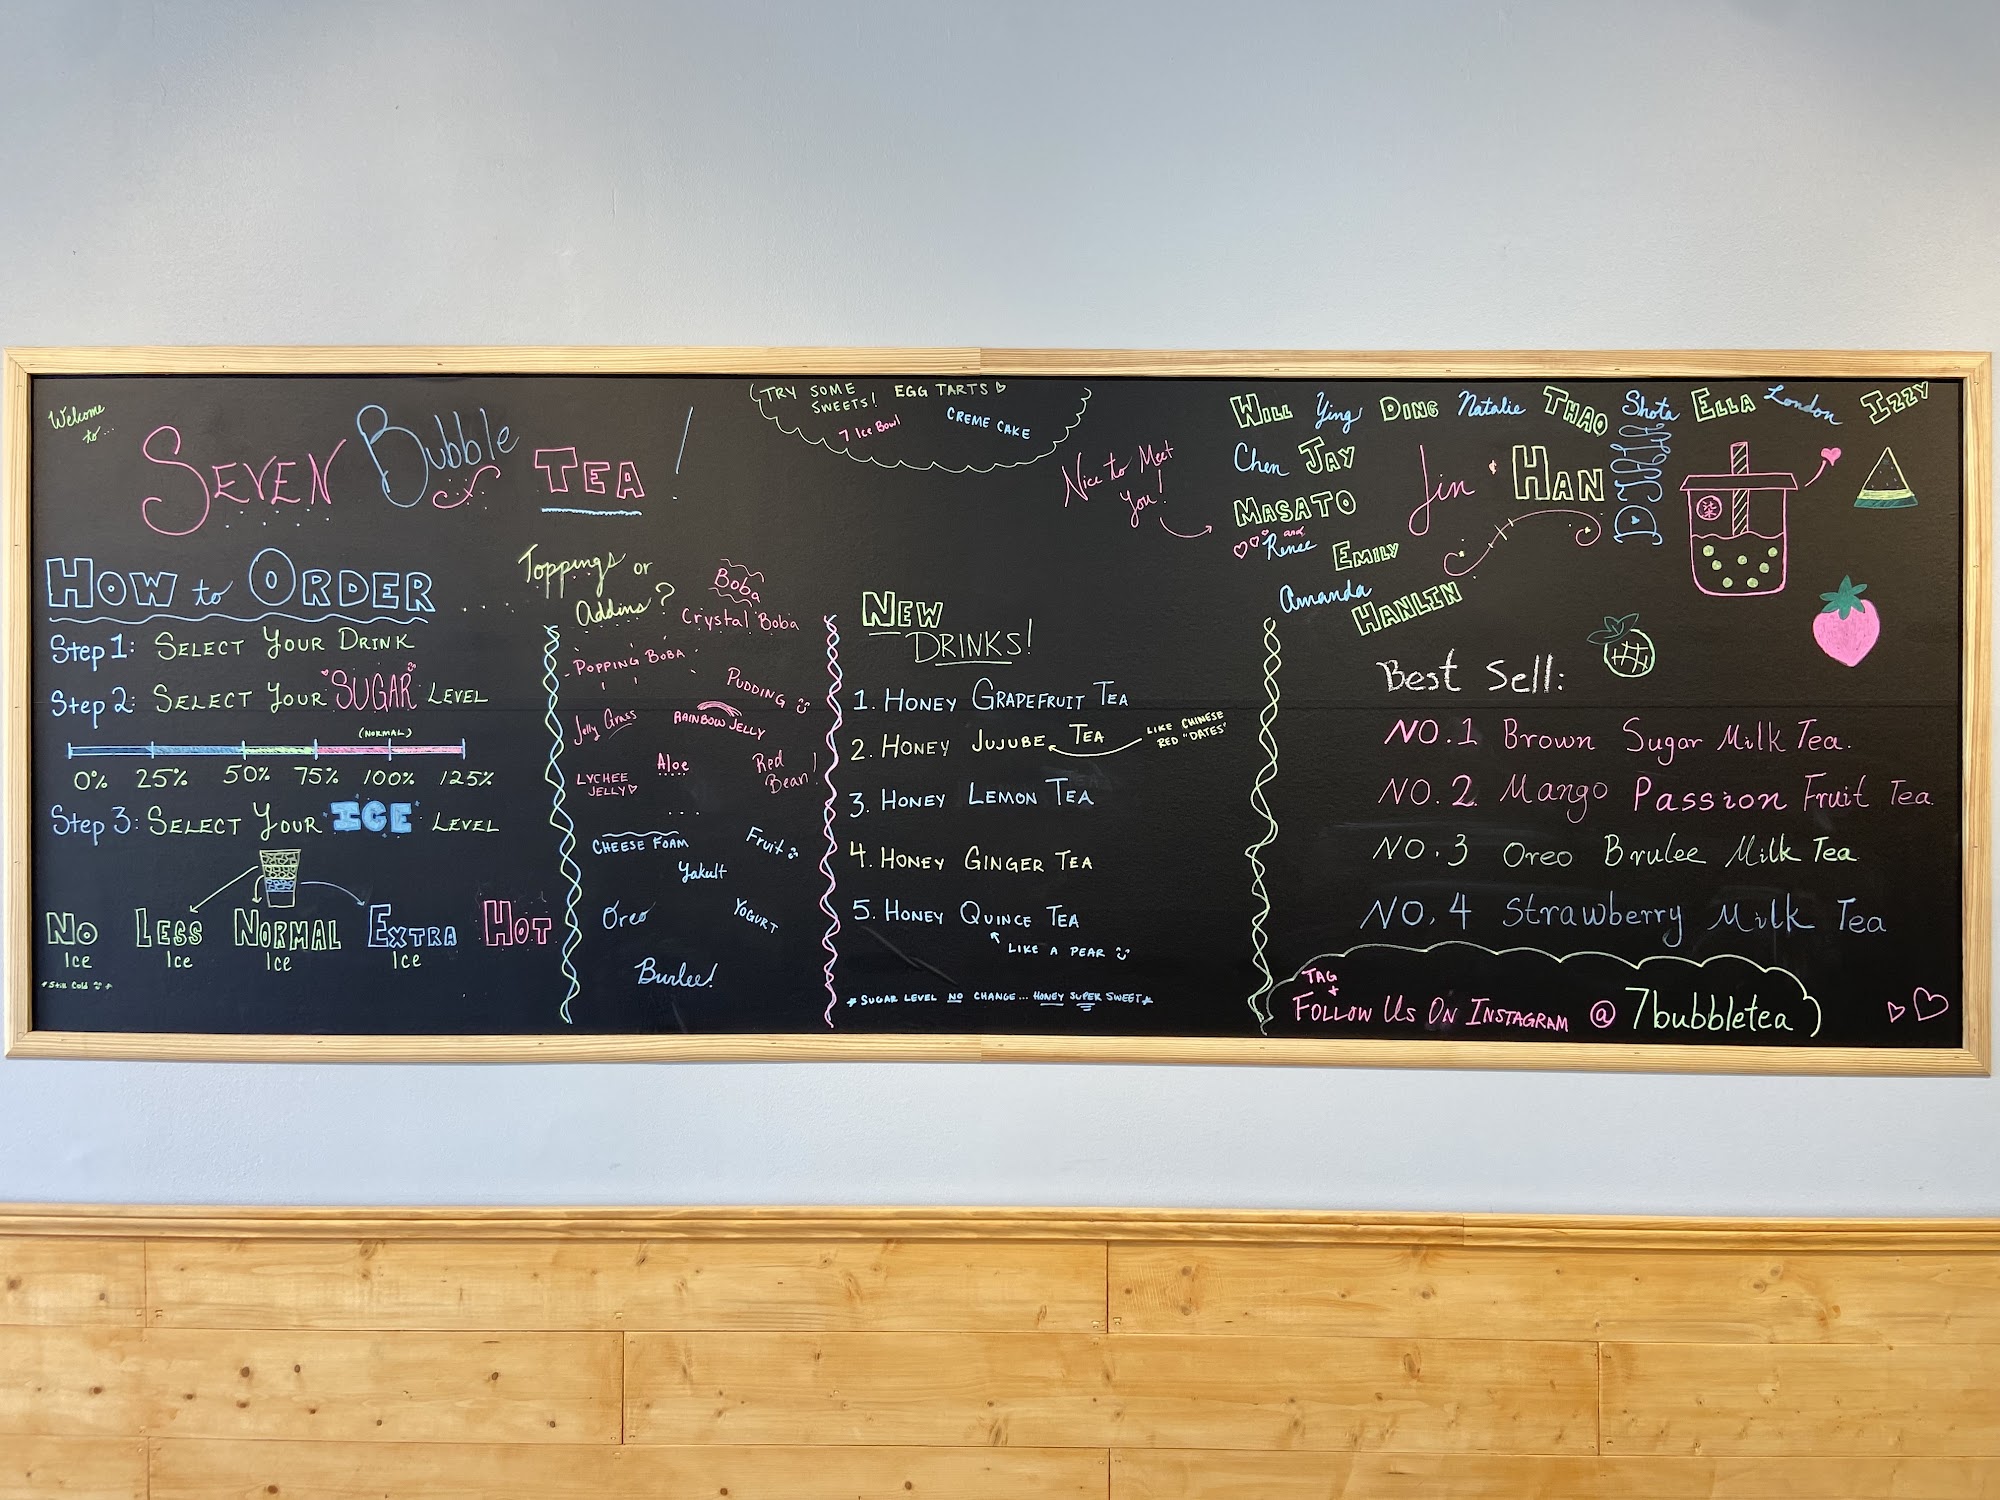 Welcome
to...
SEVEN Bubble TEA!
HOW to ORDER.....
Step 1: SELECT YOUR DRINK
Step 2: SELECT YOUR SUGAR LEVEL
(NORMAL)
0% 25% 50% 75% 100% 125%
Step 3: SELECT YOUR ICE LEVEL
NO LESS NORMAL EXTRA HOT
Ice Ice Ice Ice
*Still Cold*
Toppings or
Addins?
Boba
Crystal Boba
POPPING BOBA
PUDDING
Jelly Grass
RAINBOW JELLY
LYCHEE
JELLY
Aloe
Red
Bean!
...
CHEESE FOAM
Fruit
Yakult
Oreo
YOGURT
Burlee!
TRY SOME
SWEETS! EGG TARTS
7 Ice Bowl
CREME CAKE
NEW
DRINKS!
1. HONEY GRAPEFRUIT TEA
2. HONEY JUJUBE TEA
LIKE CHINESE
RED "DATES"
3. HONEY LEMON TEA
4. HONEY GINGER TEA
5. HONEY QUINCE TEA
LIKE A PEAR
*SUGAR LEVEL NO CHANGE... HONEY SUPER SWEET*
Nice to Meet
You!
WILL Ying DING Natalie THAO Shota ELLA London IZZY
Chen JAY
Jin & HAN
MASATO
and
Renee
EMILY
Amanda
HANLIN
Best Sell:
NO.1 Brown Sugar Milk Tea.
NO.2. Mango Passion Fruit Tea.
NO.3 Oreo Brulee Milk Tea.
NO.4 Strawberry Milk Tea
TAG
+
FOLLOW US ON INSTAGRAM @ 7bubbletea